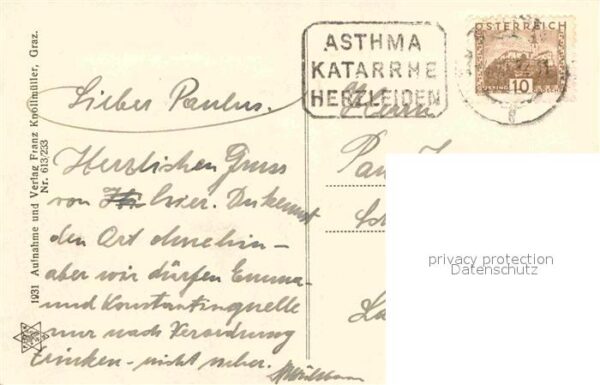 1931 Aufnahme und Verlag Franz Knollmüller, Graz.
Nr. 613/233
ASTHMA
KATARRHE
HERZLEIDEN
ÖSTERREICH
10
Lieber Paulus.
Herzlichen Gruss
von hier. Du kennst
den Ort ohnehin –
aber wir dürfen Emma-
und Konstantinquelle
nur nach Verordnung
trinken – nicht
Herrn
privacy protection
Datenschutz